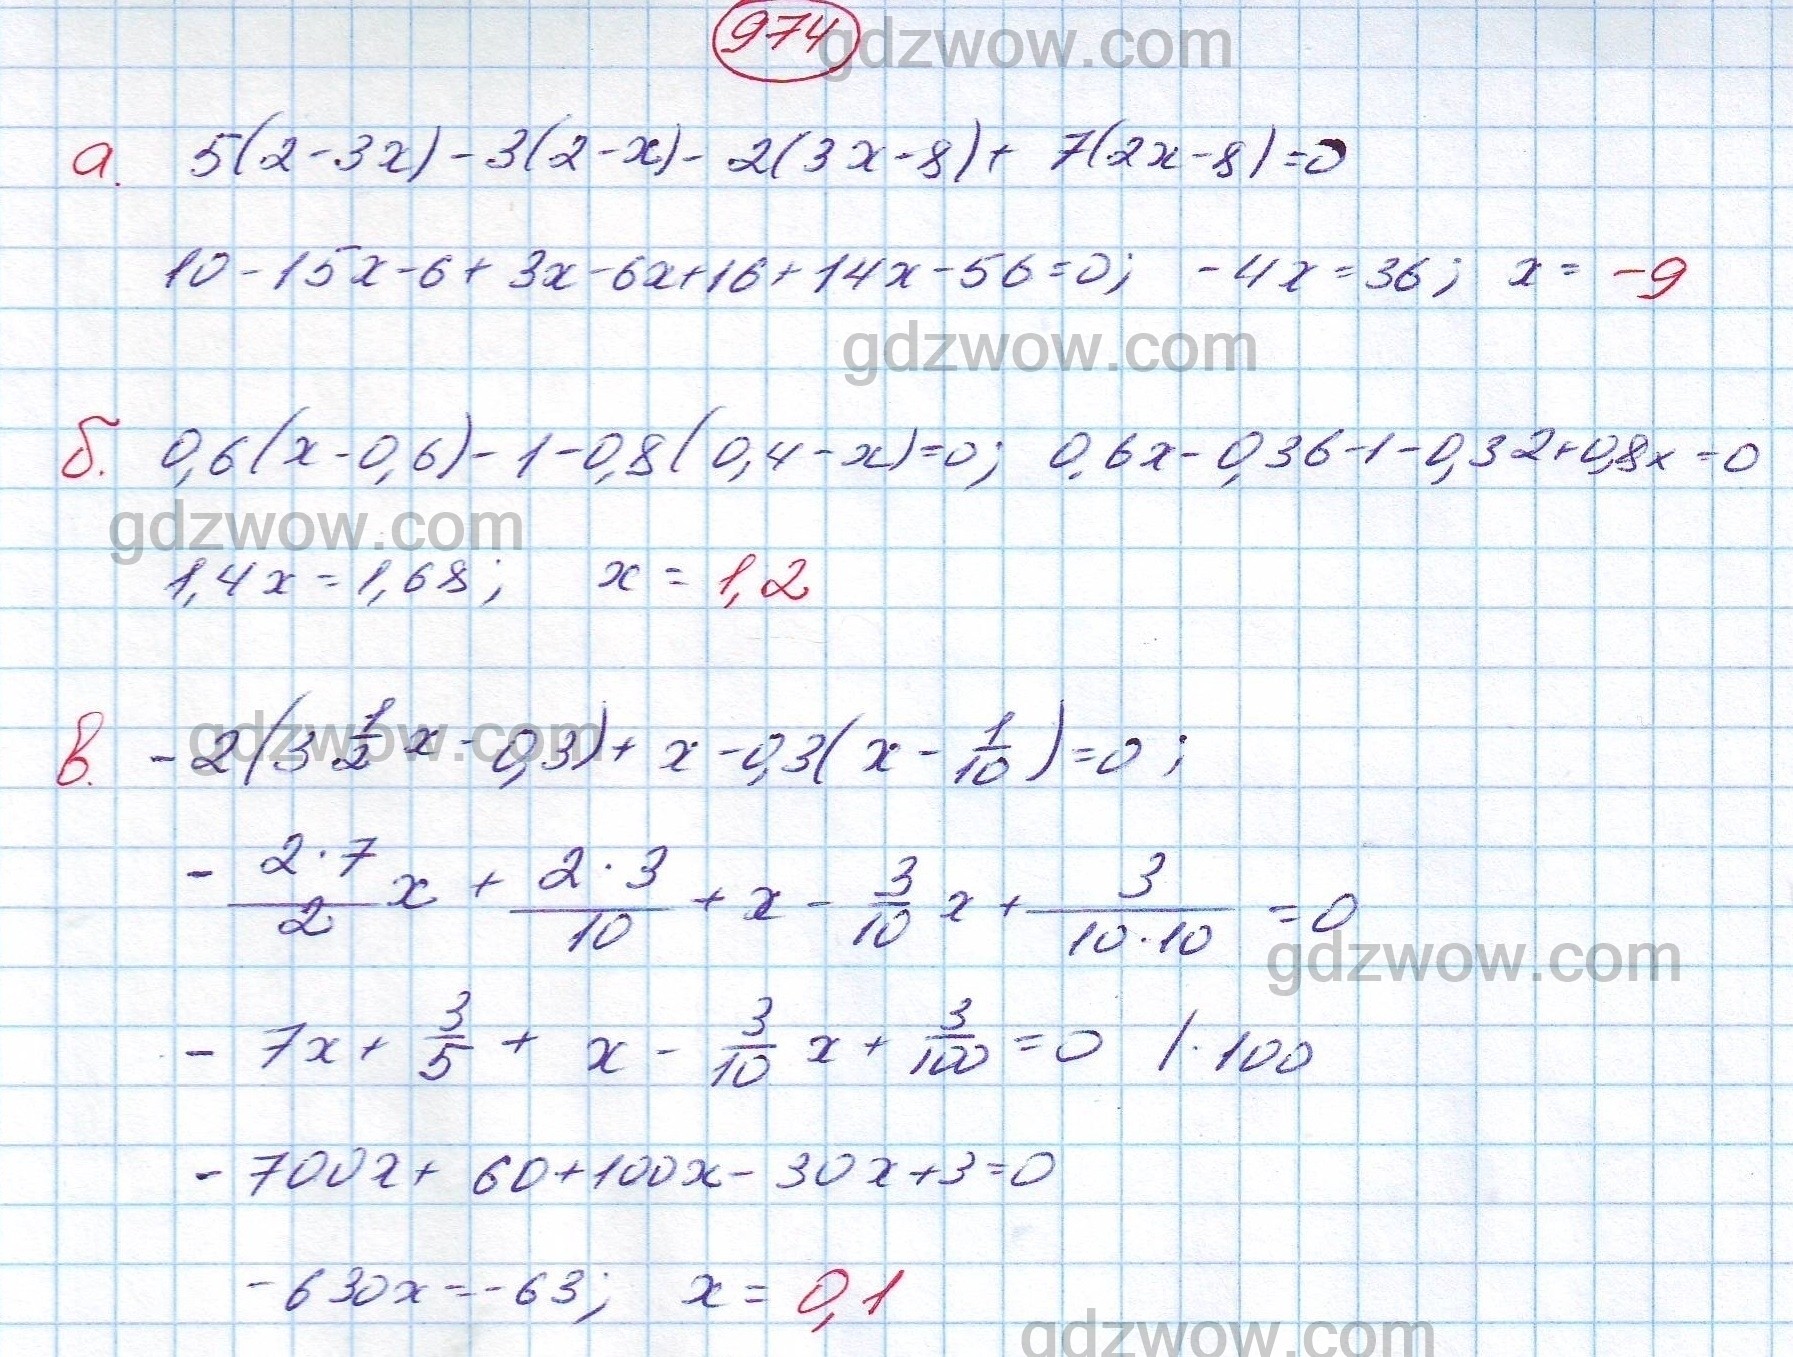 974 gdzwow.com
а. 5(2-3x)-3(2-x)-2(3x-8)+7(2x-8)=0
10-15x-6+3x-6x+16+14x-56=0; -4x=36; x=-9
gdzwow.com
б. 0,6(x-0,6)-1-0,8(0,4-x)=0; 0,6x-0,36-1-0,32+0,8x=0
gdzwow.com
1,4x=1,68; x=1,2
gdzwow.com
в. -2(3 1/2 x-0,3)+x-0,3(x-1/10)=0;
-2·7/2 x+2·3/10+x-3/10 x+3/10·10=0
gdzwow.com
-7x+3/5+x-3/10 x+3/100=0 |·100
-700x+60+100x-30x+3=0
-630x=-63; x=0,1
gdzwow.com